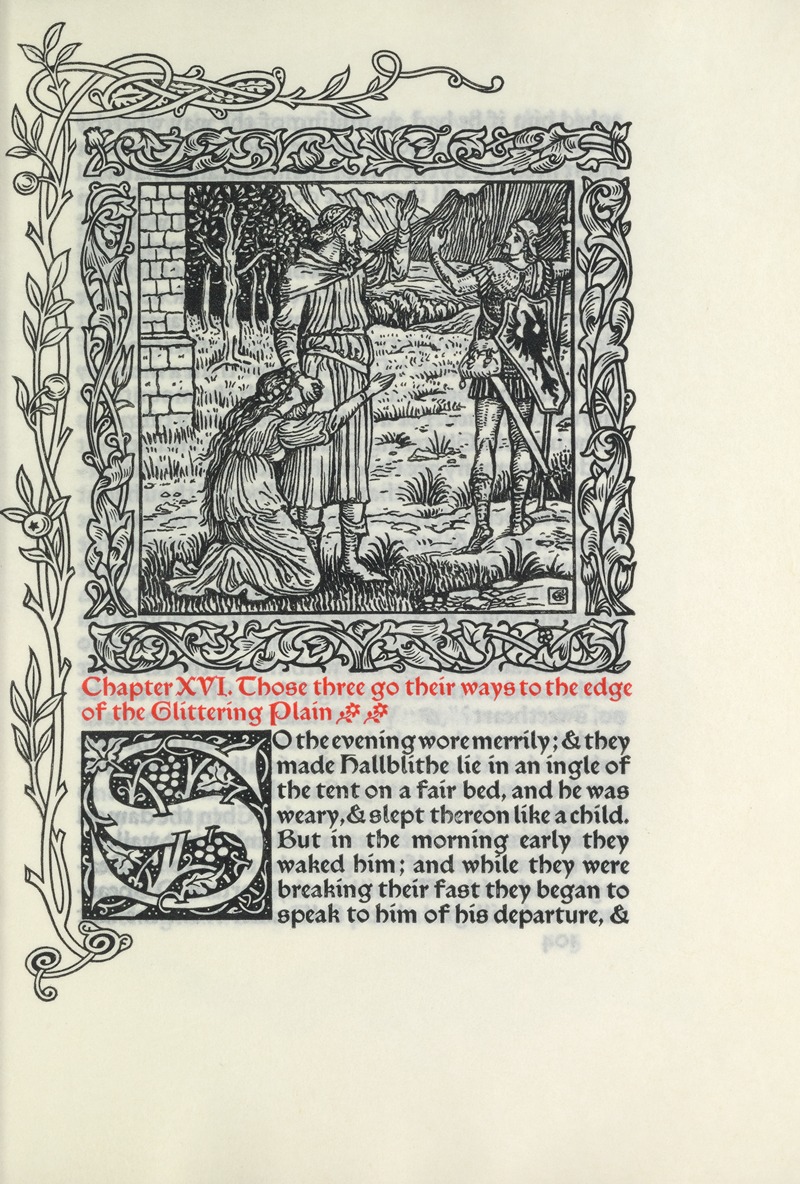 Chapter XVI. Those three go their ways to the edge
of the Glittering Plain
SO the evening wore merrily; & they
made Hallblithe lie in an ingle of
the tent on a fair bed, and he was
weary, & slept thereon like a child.
But in the morning early they
waked him; and while they were
breaking their fast they began to
speak to him of his departure, &